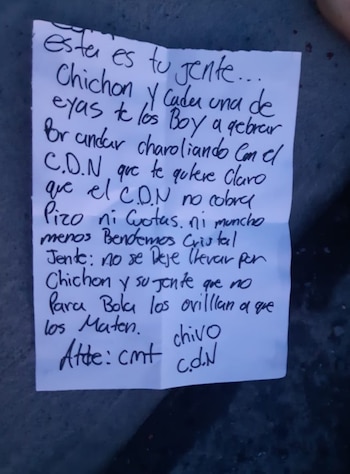 esta es tu jente...
Chichon y Cada una de
eyas te los Boy a qebrar
Por andar charoliando Con el
C.D.N que te quiere Claro
que el C.D.N no cobra
Pizo ni Cuotas. ni muncho
menos Bendemos Cristal
Jente: no se Deje llevar por
Chichon y su jente que no
Para Bola los orillan a que
los Maten.
Atte: cmt chivo
C.d.N